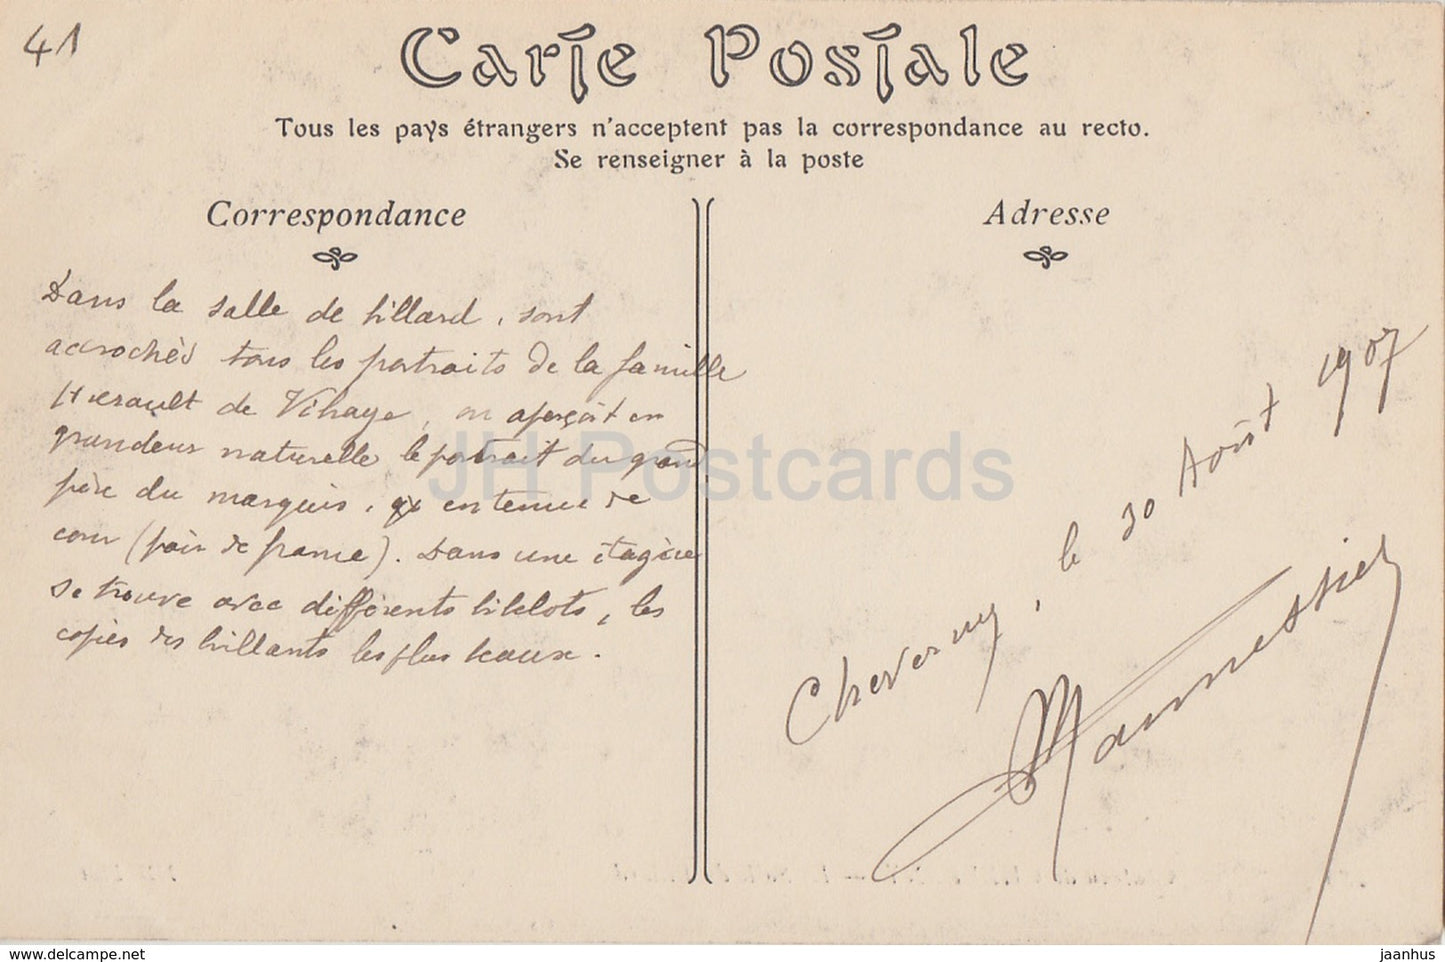 41
Carte Postale
Tous les pays étrangers n'acceptent pas la correspondance au recto.
Se renseigner à la poste
Correspondance
Adresse
Dans la salle de billard, sont
accrochés tous les portraits de la famille
Hurault de Vibraye, on aperçoit en
grandeur naturelle le portrait du grand
père du marquis, en tenue de
cour (pair de france). Dans une étagère
se trouve avec différents bibelots, les
copies des brillants les plus beaux.
Cheverny, le 30 Août 1907
Mannessier
JH Postcards
delcampe.net
jaanhus